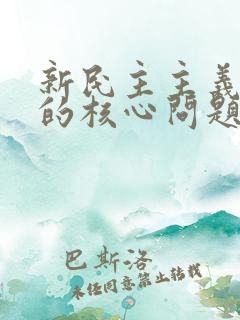 新民主主義
的核心問題
巴斯洛
未经同意禁止转载